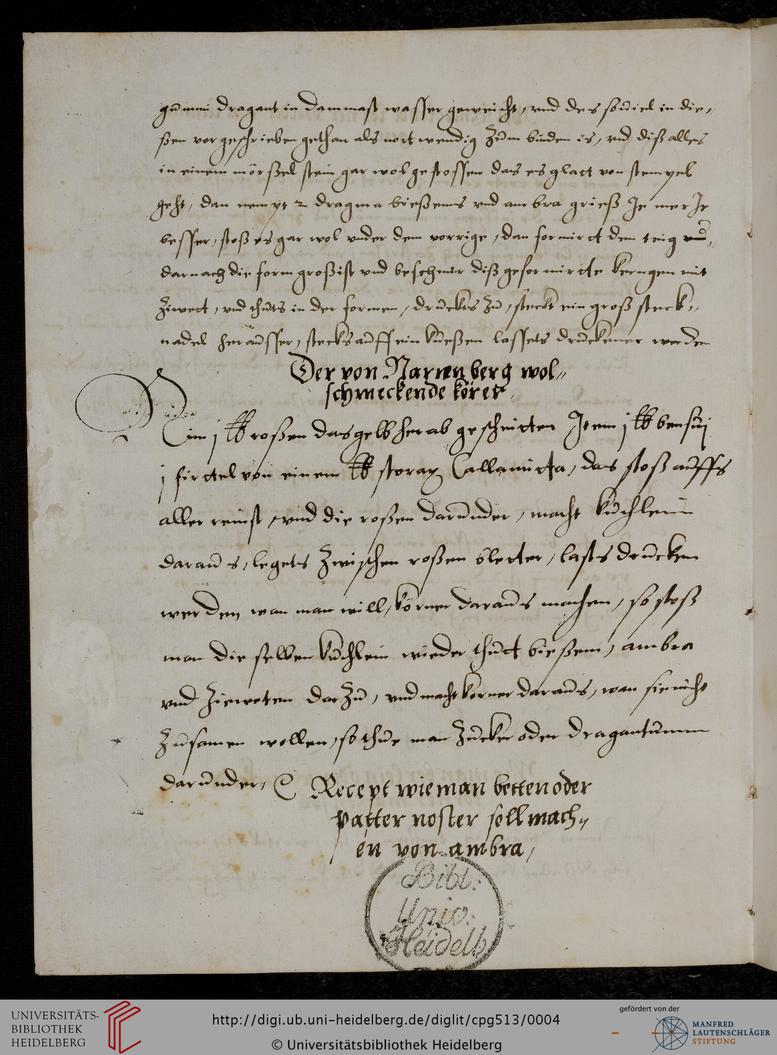 gummi dragant in dammast wasser geweicht, vnd des souiel in die,
ßen vorgeschrieben gethan als nottwendig zum binden is, vnd diß alles
in einem mörßel stein gar wol gestossen das es glatt von stempel
geht, dan nempt 2 dragma bießems vnd ambra grieß Je mer Je
besser, stoß es gar wol vnder dem vorrige, dan formirct den teig
darnach die form groß ist vnd beschmir diß geformircte mit
ziwett, vnd thuts in der formen, druckts zu, steckt ein groß steck,,
nadel herausser, stecks auff ein kueßen lassets druckener werden
Der von Narnnberg wol,,
schmeckende körer.
Nim j lb roßen das gelb herab geschnitten Item j lb bensuj
j firctel von einem lb storax Callamitta, das stoß auffs
aller reinst, vnd die roßen darunder, macht kuchlein
daraus, legets zwischen roßen bletter, lasts drucken
werden wan man will, körner daraus machen, so stoß
man die selben kuchlein wieder thutt bießem, ambra
vnd zieweten darzu, vnd macht körner daraus, wan sie nicht
zusamen wollen, so thue man zucker oder dragantumm
darunder,
Recept wie man betten oder
patter noster soll mach,,
en von ambra,
Bibl:
Univ:
Heidelb
UNIVERSITÄTS-
BIBLIOTHEK
HEIDELBERG
http://digi.ub.uni-heidelberg.de/diglit/cpg513/0004
© Universitätsbibliothek Heidelberg
gefördert von der
MANFRED
LAUTENSCHLÄGER
STIFTUNG